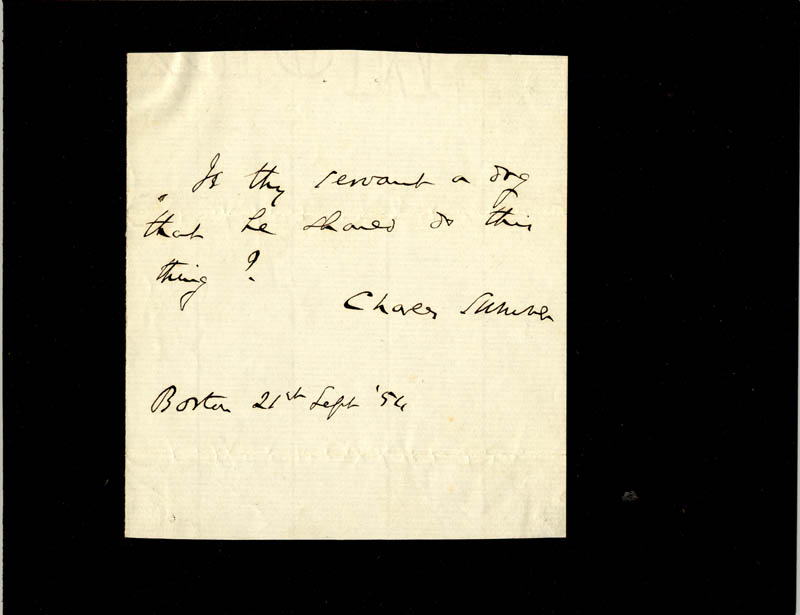 Is thy servant a dog
that he should do this
thing?
Charles Sumner
Boston 21st Sept '54